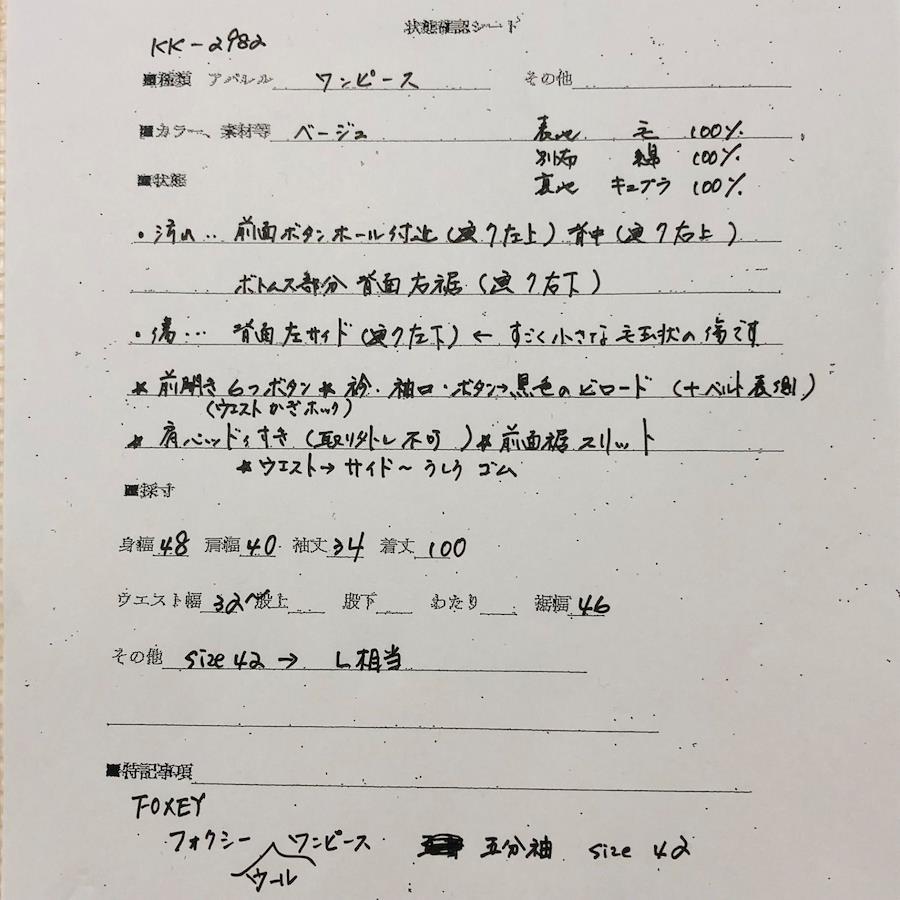 状態確認シート
KK-2982
■種類 アパレル ワンピース その他
■カラー、素材等 ベージュ 表地 毛 100%
別布 綿 100%
■状態 裏地 キュプラ 100%
・汚れ‥ 前面ボタンホール付近(画7左上) 背中(画7右上)
ボトムス部分 背面右裾(画7右下)
・傷… 背面左サイド(画7左下) ← すごく小さな毛玉状の傷です
* 前開き6つボタン * 衿・袖口・ボタン→黒色のビロード (+ベルト表側)
(ウエストかぎホック)
* 肩パッドうすき(取り外し不可) * 前面裾スリット
* ウエスト→サイド〜うしろ ゴム
■採寸
身幅 48 肩幅 40 袖丈 34 着丈 100
ウエスト幅 32〜 股上 股下 わたり 裾幅 46
その他 size 42 → L相当
■特記事項
FOXEY
フォクシー ワンピース 五分袖 size 42
ウール